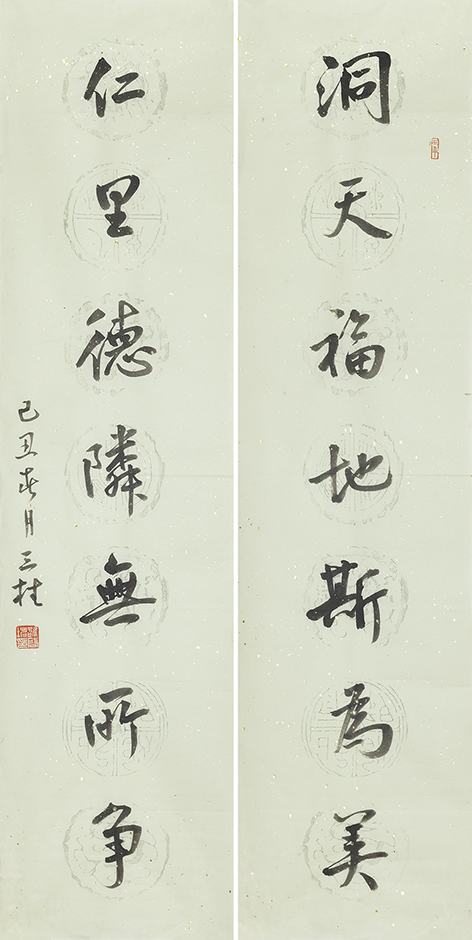 洞天福地斯為美
仁里德隣無所争
己丑春月三桂